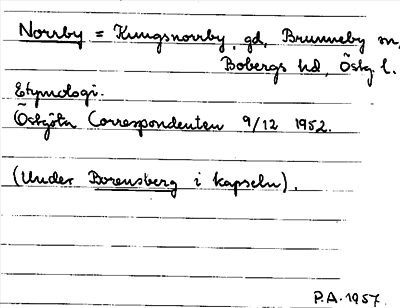 Norrby = Kungsnorrby, gd, Brunneby sn,
Bobergs hd, Östg. l.
Etymologi.
Östgöta Correspondenten 9/12 1952.
(Under Borensberg i kapseln).
P.A. 1957.